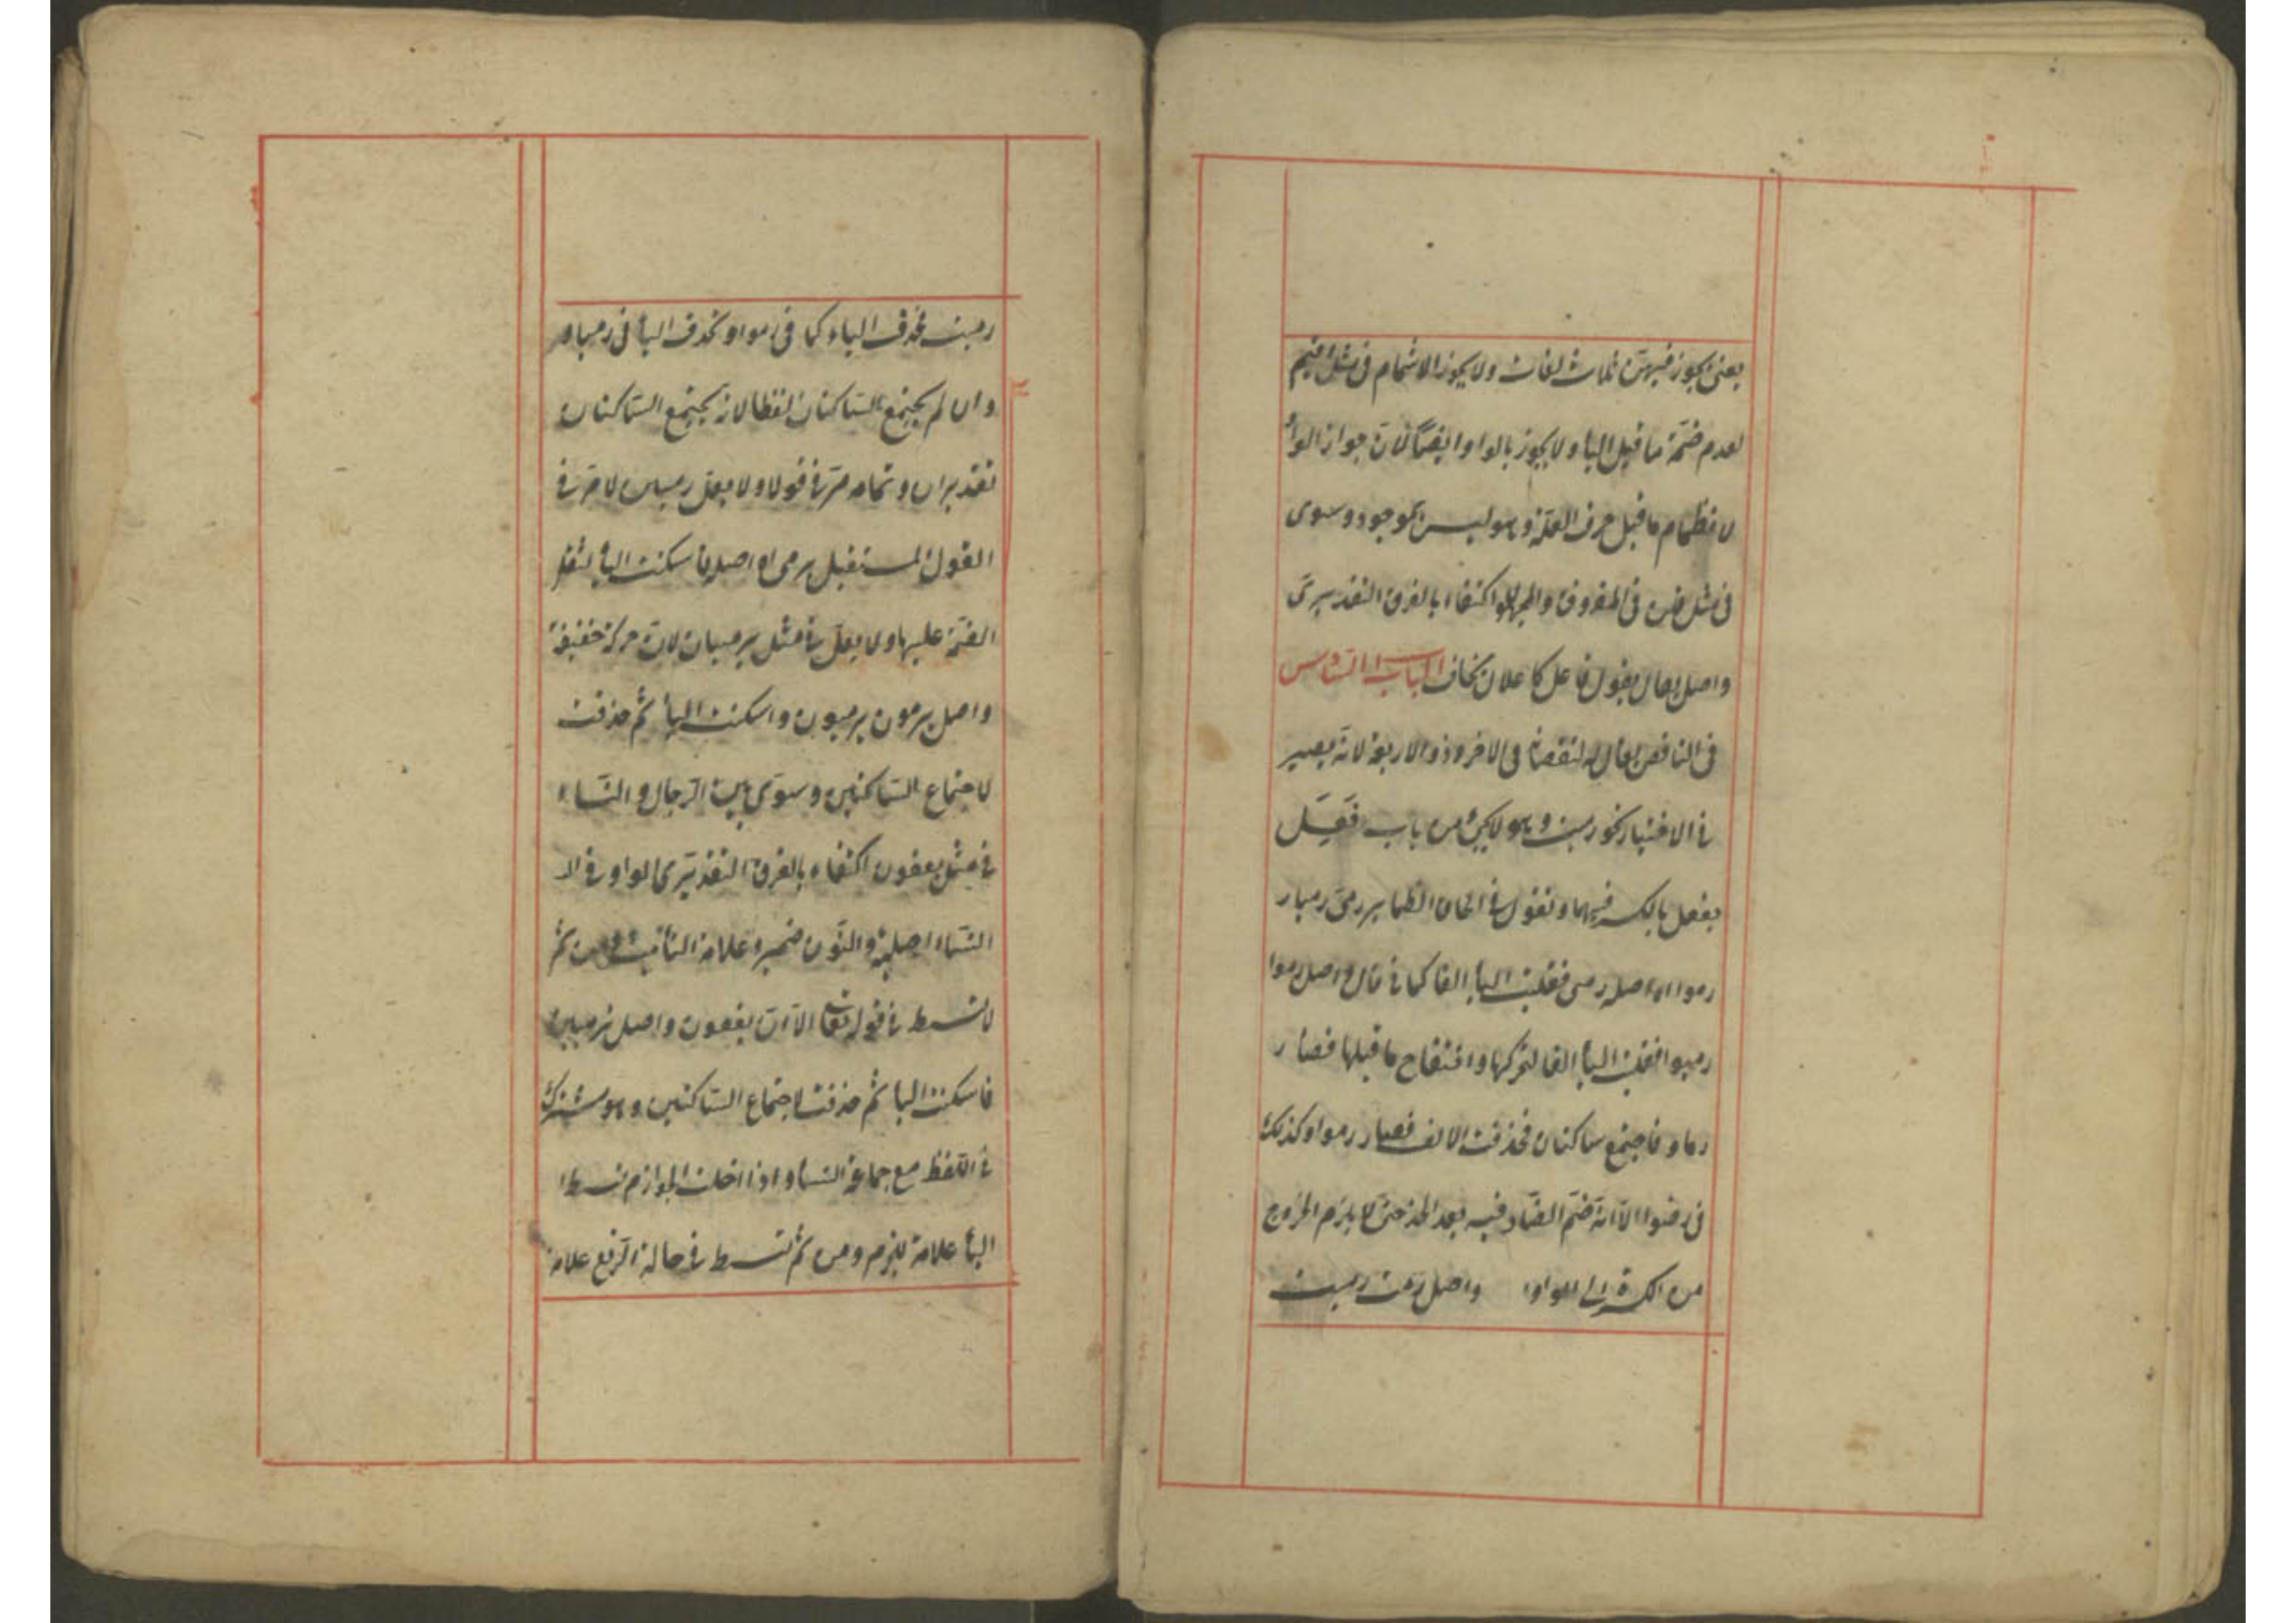 يعنى يجوز فيهن ثلاث لغات ولا يجوز الاشمام فى مثل اقيم
لعدم ضمّة ما قبل اليأ ولا يجوز بالواو ايضًا لانّ جواز الواو
لانضمام ما قبل حرف العلّة وهو ليس بموجود وسوى
فى مثل فى المعروف والمجهول اكتفاء بالفرق التقديرىّ
واصل يقال يقول فاعل كاعلال يخاف الباب السّادس
فى الناقص يقال له لنقصانه فى الاخر وذو الاربعة لانّه يصير
فى الاخبار نحو رميت وهو لا يجئ من باب فَعِل
يفعل بالكسر فيهما وتقول فى الحاق الظماير رمى رميا ر
رموا اه اصله رمى فقلبت اليأ الفا كما فى قال واصل رموا
رميوا فقلبت اليأ الفا لتحركها وانفتاح ما قبلها فصار
رماو فاجتمع ساكنان فحذفت الالف فصار رموا وكذلك
فى رضوا الّا انّه ضمّ الضّاد فيه بعد الحذف حتى لا يلزم الخروج
من الكسرة الى الواو واصل رمت رميت
رميت فحذف الياء كما فى رموا وتحذف اليأ فى رميا
وان لم يجتمع السّاكنان لفظا لانه يجتمع السّاكنان
تقديرا وتمامه مرّ فى قولا ولا يعلّ رمين لما مرّ فى
القول المستقبل يرمى اه اصله فاسكنت اليأ لثقل
الضمّة عليها ولا يعلّ فى مثل يرميان لانّ حركته خفيفة
واصل يرمون يرميون واسكنت اليأ ثم حذفت
لاجتماع السّاكنين وسوى بين الرّجال والنّساء
فى مثل يعفون اكتفاء بالفرق التقديرى الواو فى
النّساء اصلية والنّون ضمير وعلامة التأنيث ومن ثم
لا تسقط فى قوله تعالى الّا ان يعفون واصل ترمين ترميين
فاسكنت اليأ ثم حذفت لاجتماع السّاكنين وهو مشترك
فى اللّفظ مع جماعة النسأ واذا ادخلت الجوازم تسقط
اليأ علامة للجزم ومن ثم تسقط فى حالة الرّفع علامة